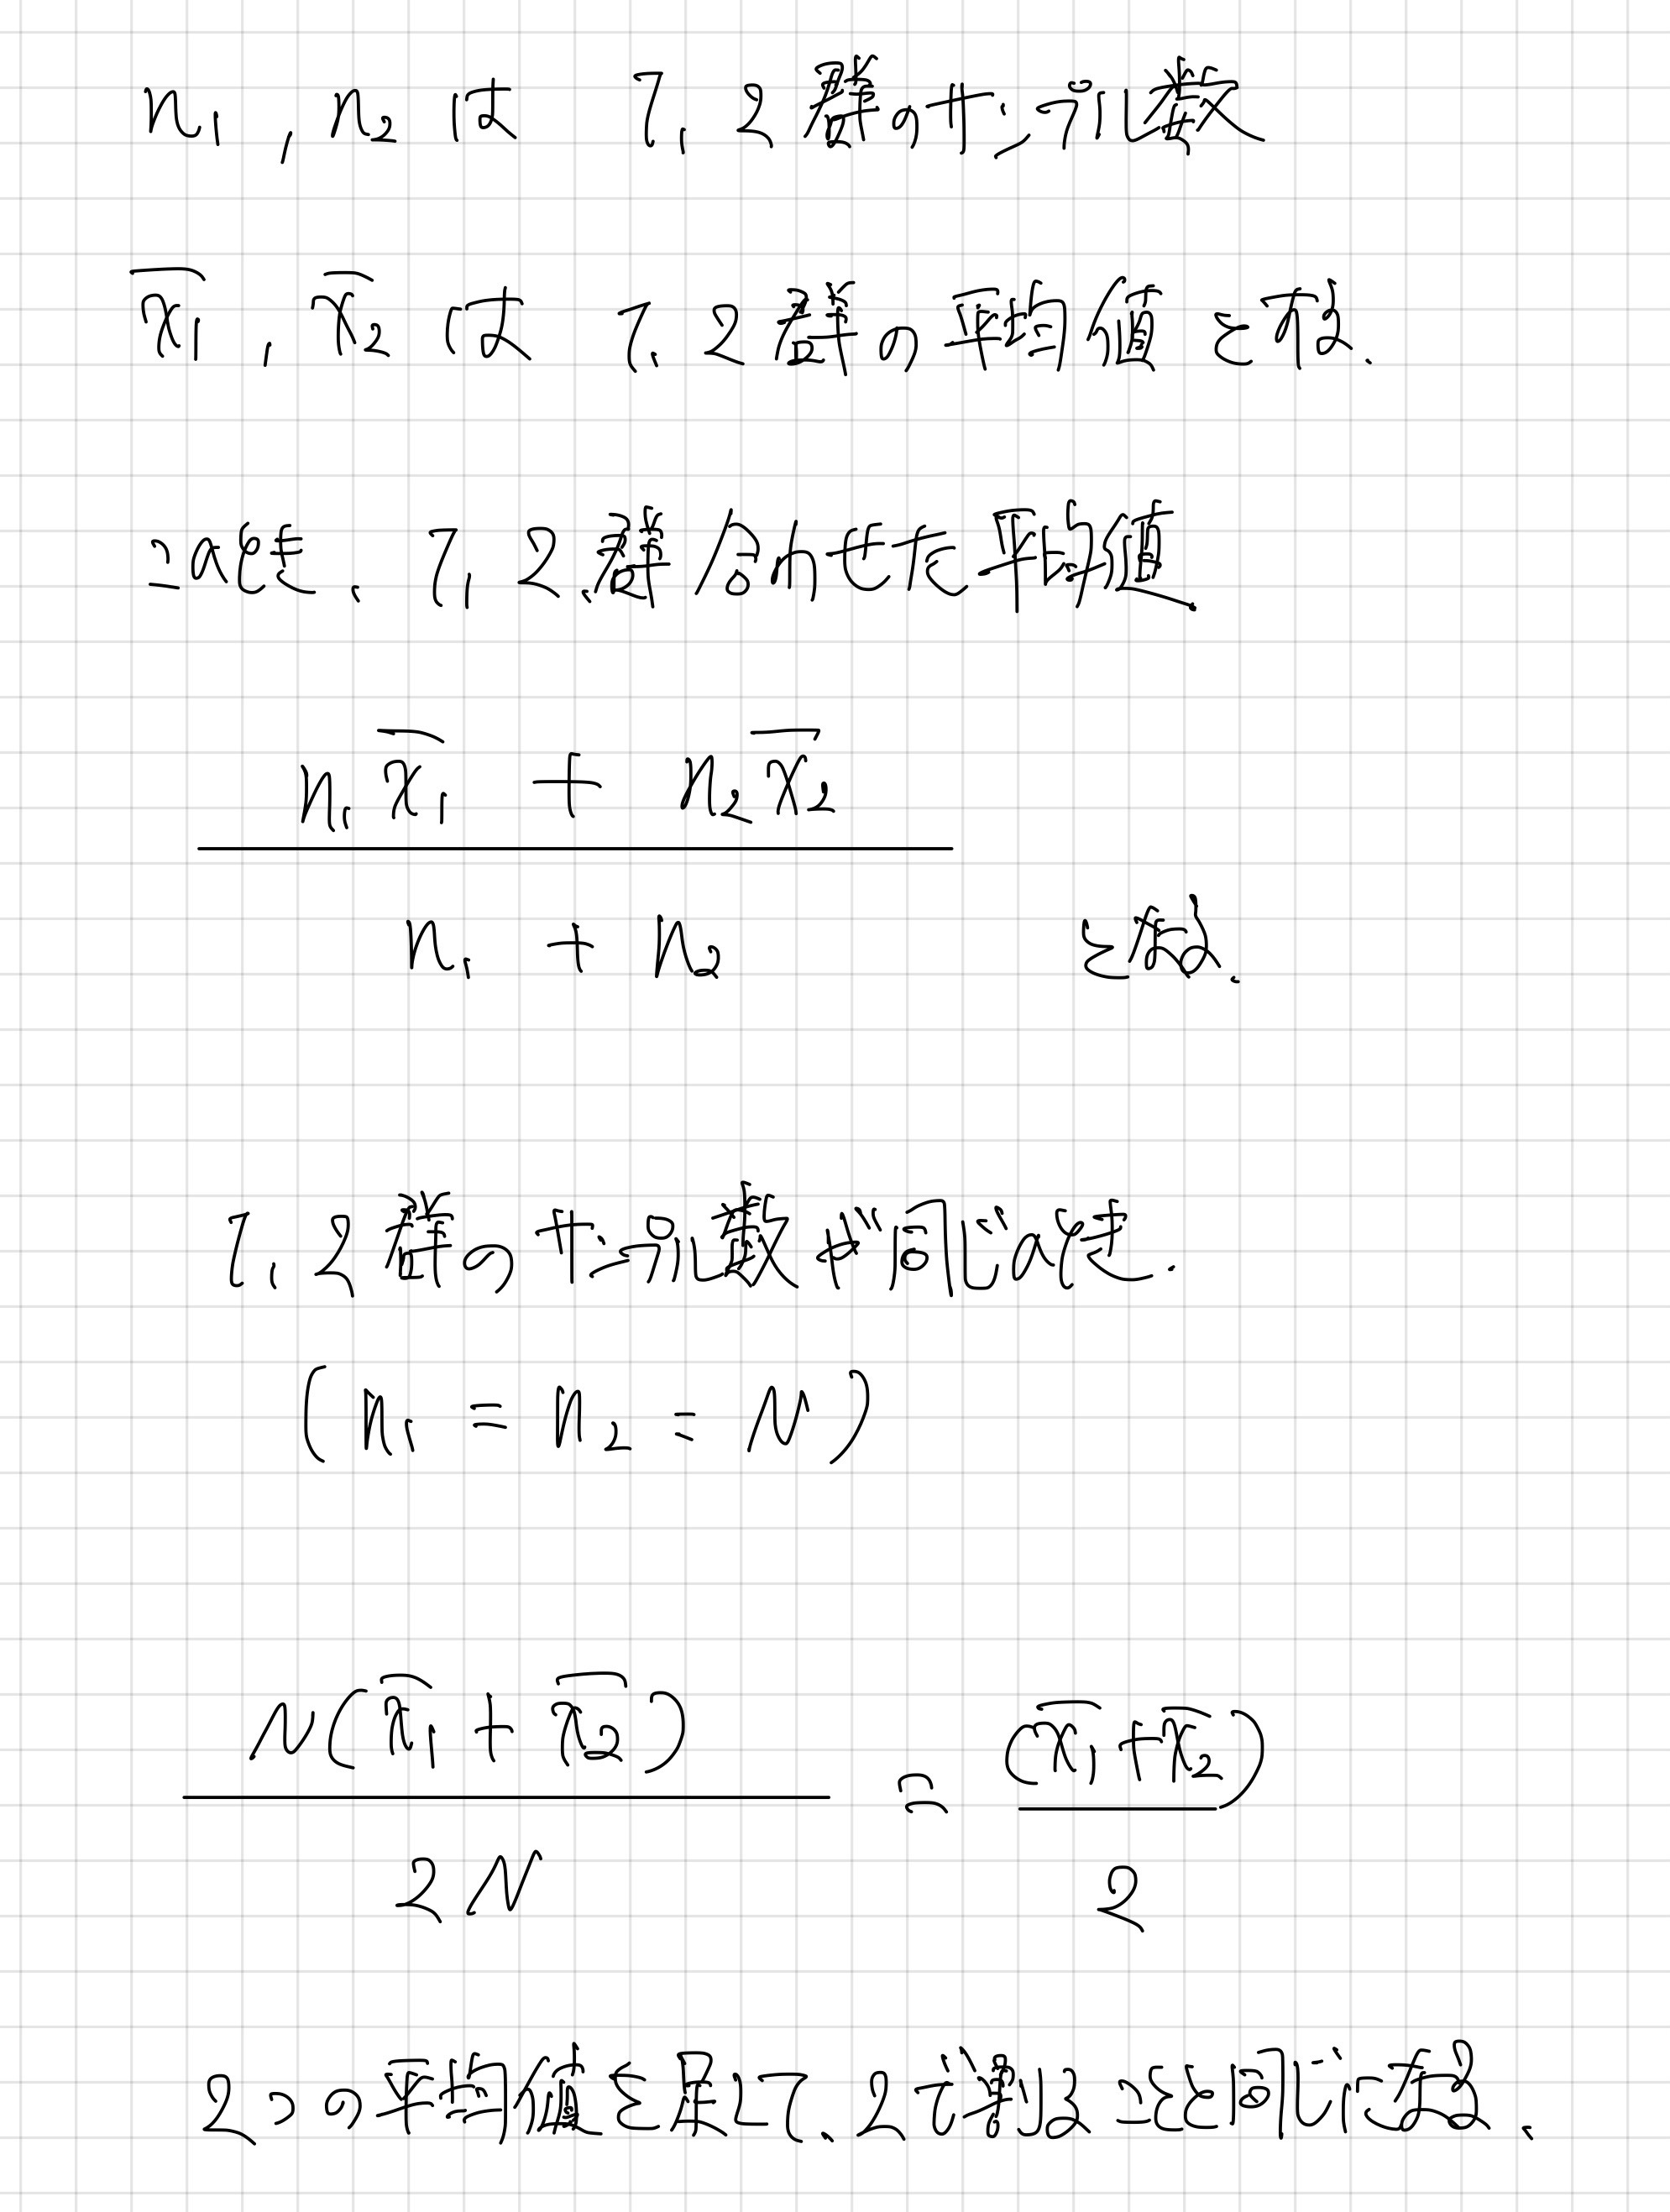 n₁, n₂ は 1, 2 群のサンプル数
x̄₁, x̄₂ は 1, 2 群の平均値とする.
この時、1, 2 群合わせた平均値
n₁x̄₁ + n₂x̄₂
n₁ + n₂ となる.
1, 2 群のサンプル数が同じの時.
(n₁ = n₂ = N)
N(x̄₁ + x̄₂) = (x̄₁ + x̄₂)
2N 2
2つの平均値を足して、2で割ることと同じになる、